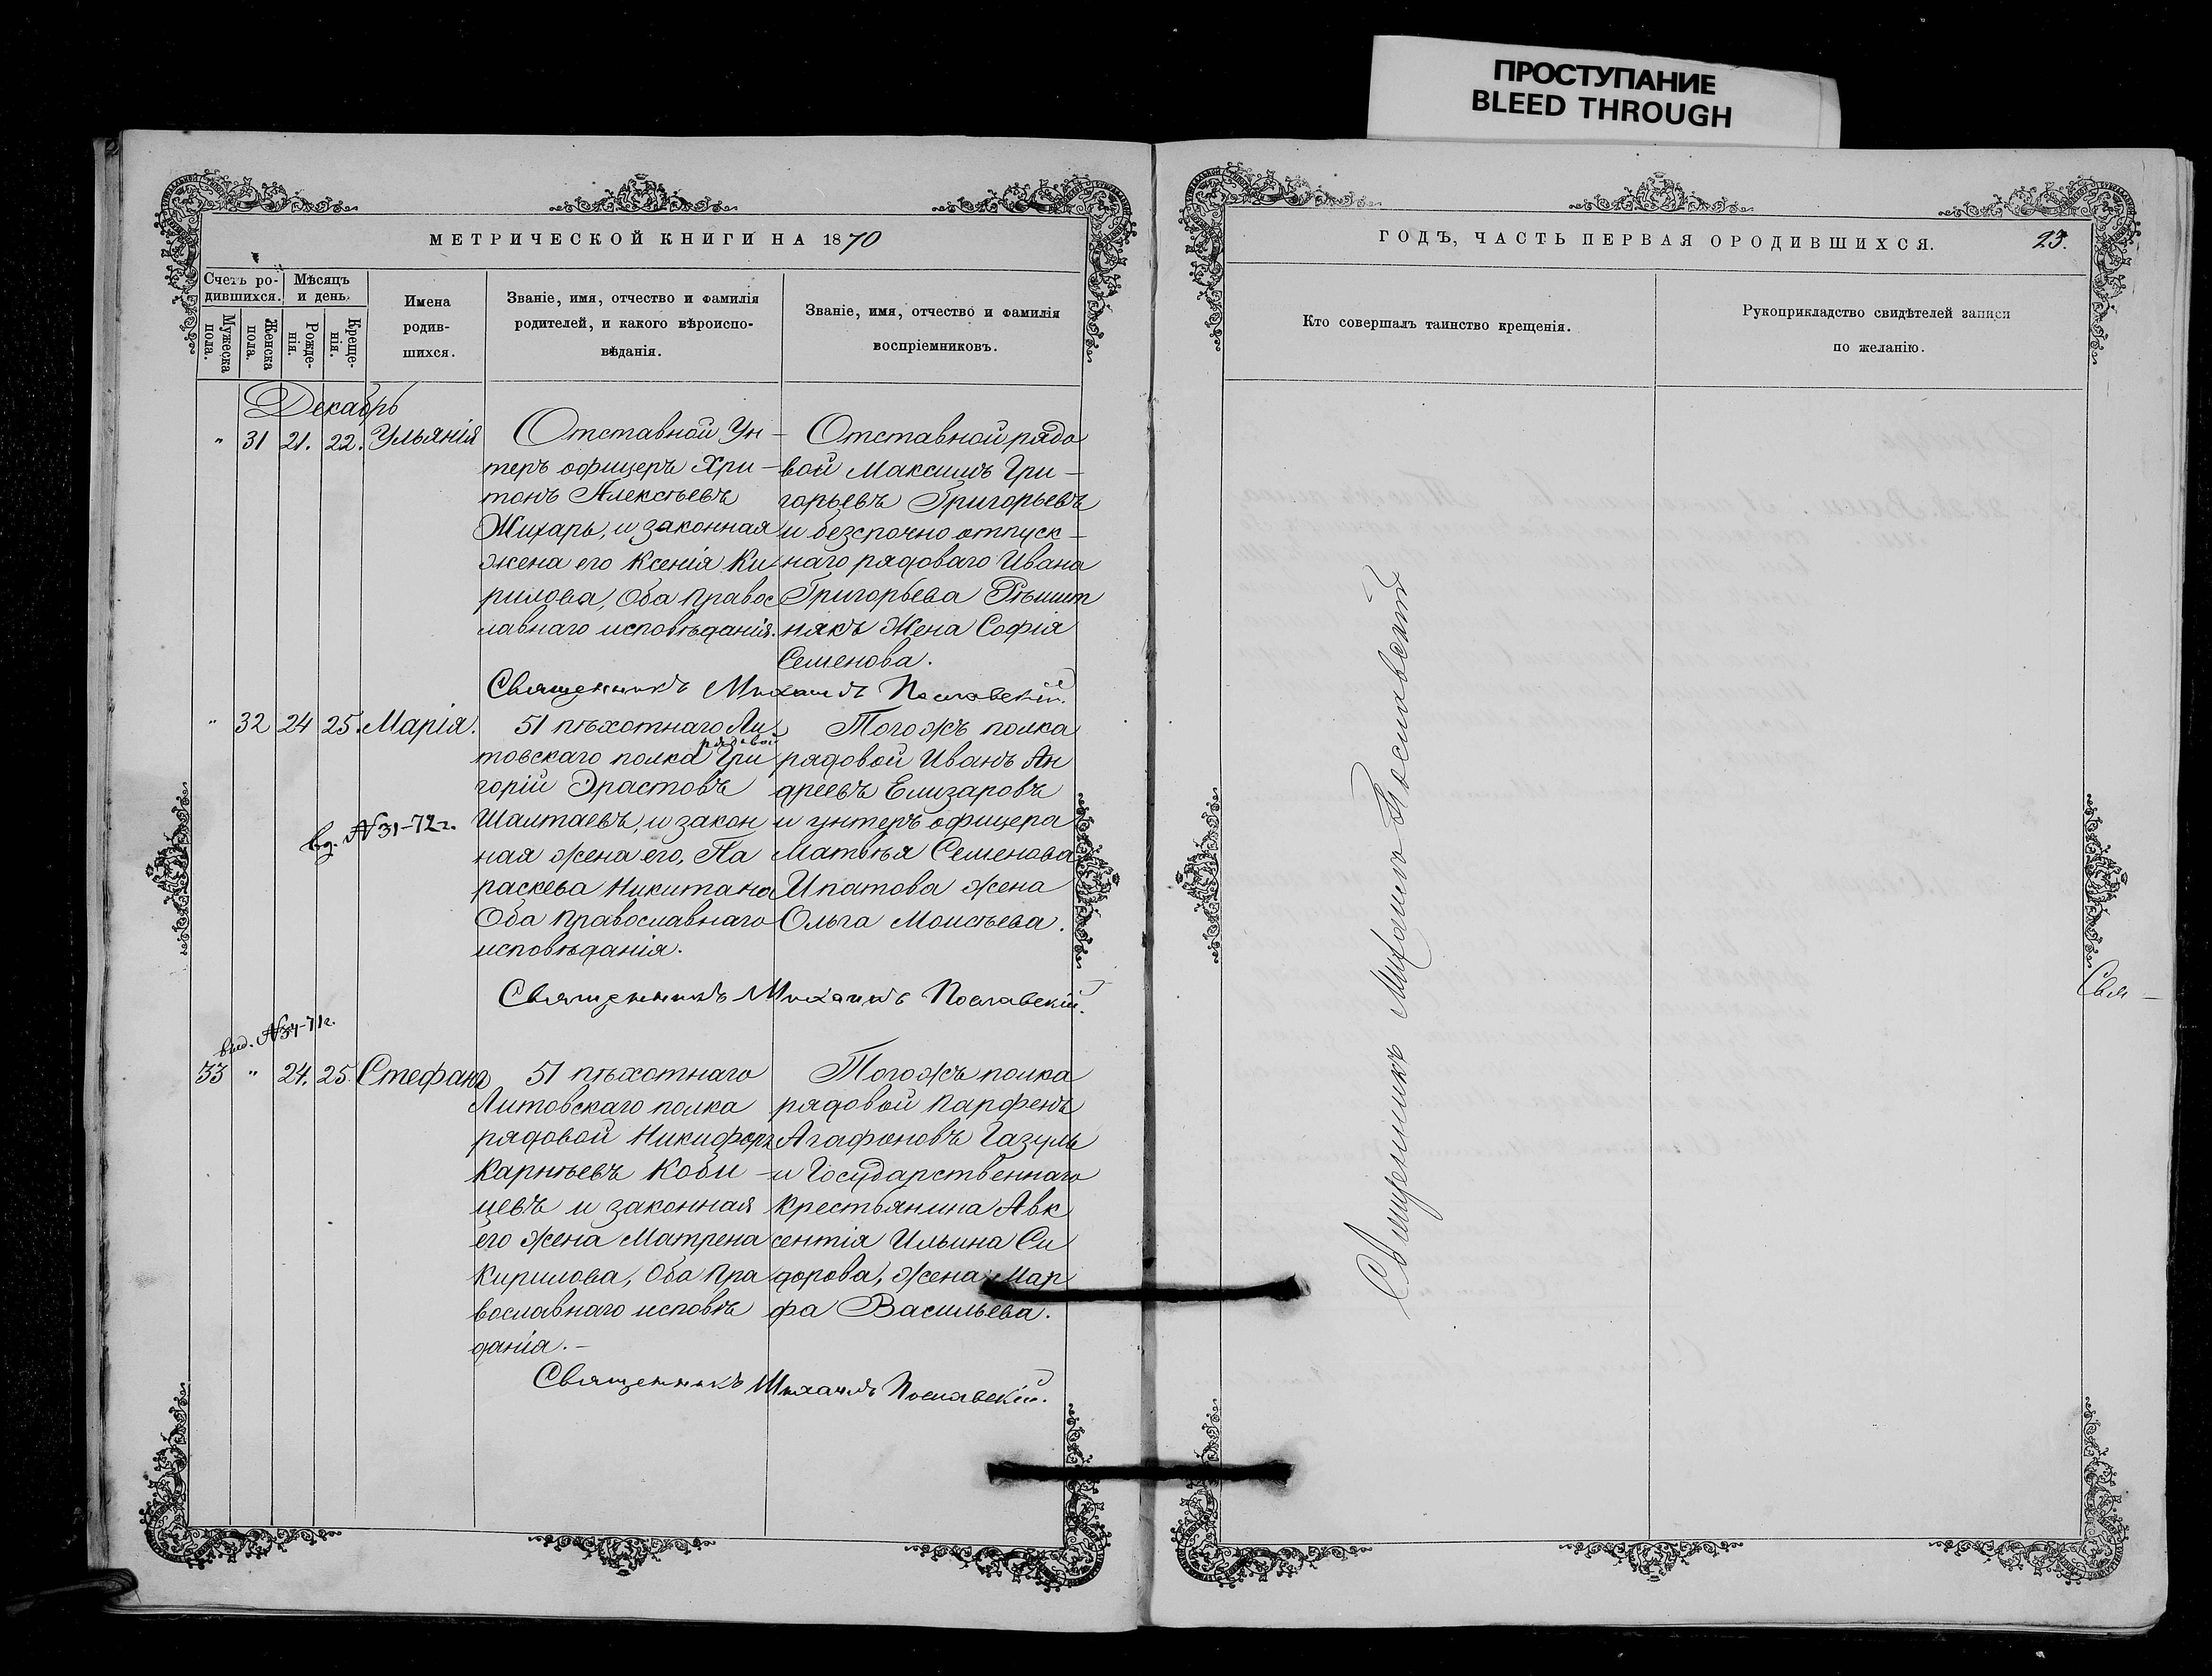 ПРОСТУПАНИЕ
BLEED THROUGH
МЕТРИЧЕСКОЙ КНИГИ НА 1870
Счетъ ро-
дившихся.
Мѣсяцъ
и день.
Мужеска
пола.
Женска
пола.
Рожде-
нія.
Креще-
нія.
Имена
родив-
шихся.
Званіе, имя, отчество и фамилія
родителей, и какого вѣроиспо-
вѣданія.
Званіе, имя, отчество и фамилія
воспріемниковъ.
Декабрь
" 31 21. 22. Ульянія
Отставной Ун-
теръ офицеръ Хри-
тонъ Алексѣевъ
Жихарь, и законная
жена его Ксенія Ки-
рилова, Оба Правос
лавнаго исповѣданія.
Отставной рядо
вой Максимъ Гри-
горьевъ Григорьевъ
и безсрочно отпуск-
наго рядоваго Ивана
Григорьева Рѣшит
някъ Жена Софія
Семенова.
Священникъ Михаилъ Пославскій.
" 32 24 25. Марія.
вд. №31-72г.
51 пѣхотнаго Ли
товскаго полка рядовой Гри
горій Эрастовъ
Шалтаевъ, и закон
ная жена его, Па
раскева Никитана
Оба Православнаго
исповѣданія.
Тогожъ полка
рядовой Иванъ Ан
дреевъ Елизаровъ
и унтеръ офицера
Матвѣя Семенова
Ипатова жена
Ольга Моисѣева.
Священникъ Михаилъ Пославскій.
выд. №34-71г.
33 " 24. 25. Стефанъ
51 пѣхотнаго
Литовскаго полка
рядовой Никифоръ
Карнѣевъ Коби-
цевъ и законная
его жена Матрена
Кирилова, Оба Пра
вославнаго исповѣ
данія.-
Тогожъ полка
рядовой Парфенъ
Агафоновъ Газуль
и Государственнаго
крестьянина Авк
сентія Ильина Си
дорова, жена Мар
фа Васильева.
Священникъ Михаилъ Пославскій.
ГОДЪ, ЧАСТЬ ПЕРВАЯ О РОДИВШИХСЯ.
23.
Кто совершалъ таинство крещенія.
Рукоприкладство свидѣтелей записи
по желанію.
Священникъ Михаилъ Пославскій
Свя-